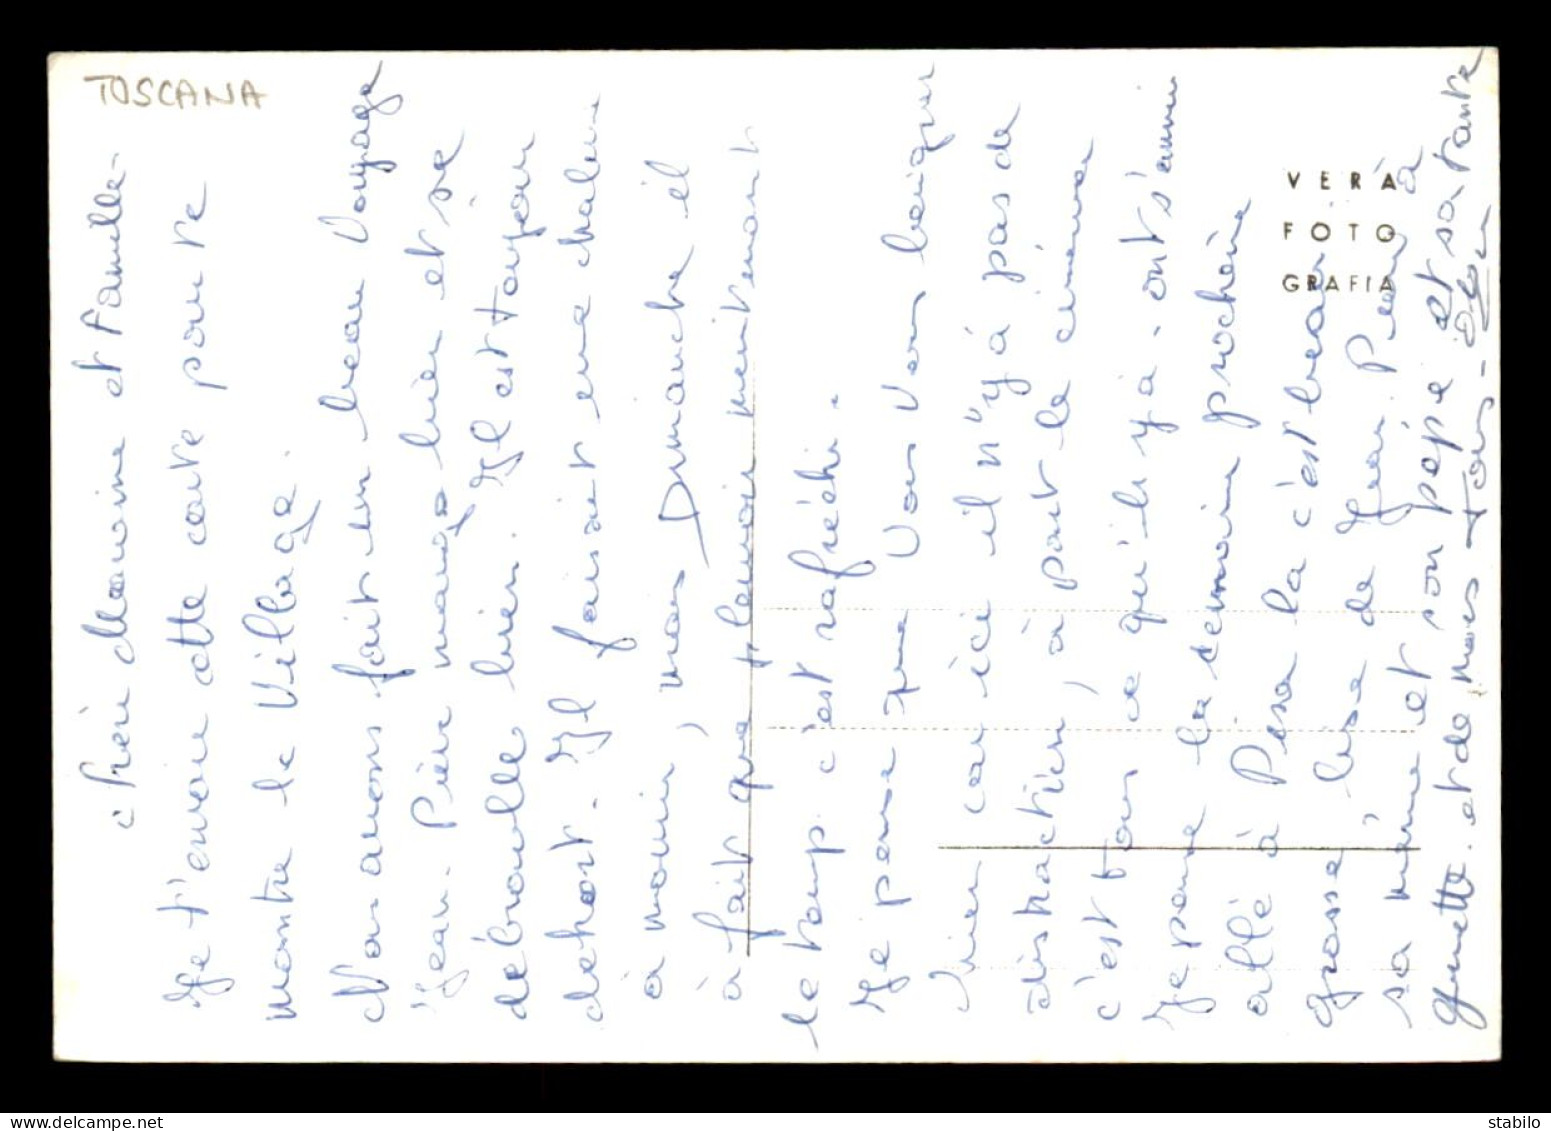 TOSCANA
VERA
FOTO
GRAFIA
chrère Marraine et Famille-
Je t'envoie cette carte pour te
montre le Village.
Nous avons fait un beau Voyage
Jean-Pièrre mange bien et se
débrouille bien. Il est toujour
dehort. Il faisait une chaleur
à mourir, mais Dimanche il
à fait que pleuvoir maintenant
le temp. c'est rafréchi.
Je pense que Vous Vous baigner
bien car ici il n'y á pas de
distraction, à part le cinéma
c'est tous ce qu'il y á. ont s'ennui
Je pense la semaine prochaine
allé à Pisa la c'est beau
grosse bise de Jean Pierre à
sa mémé et son pépé et sa tante
Ginette. et de nous tous-
stelabid.com